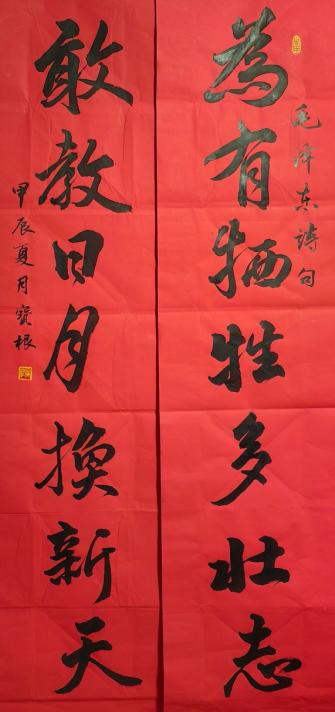 為有牺牲多壮志
毛泽东诗句
敢教日月換新天
甲辰夏月寶根